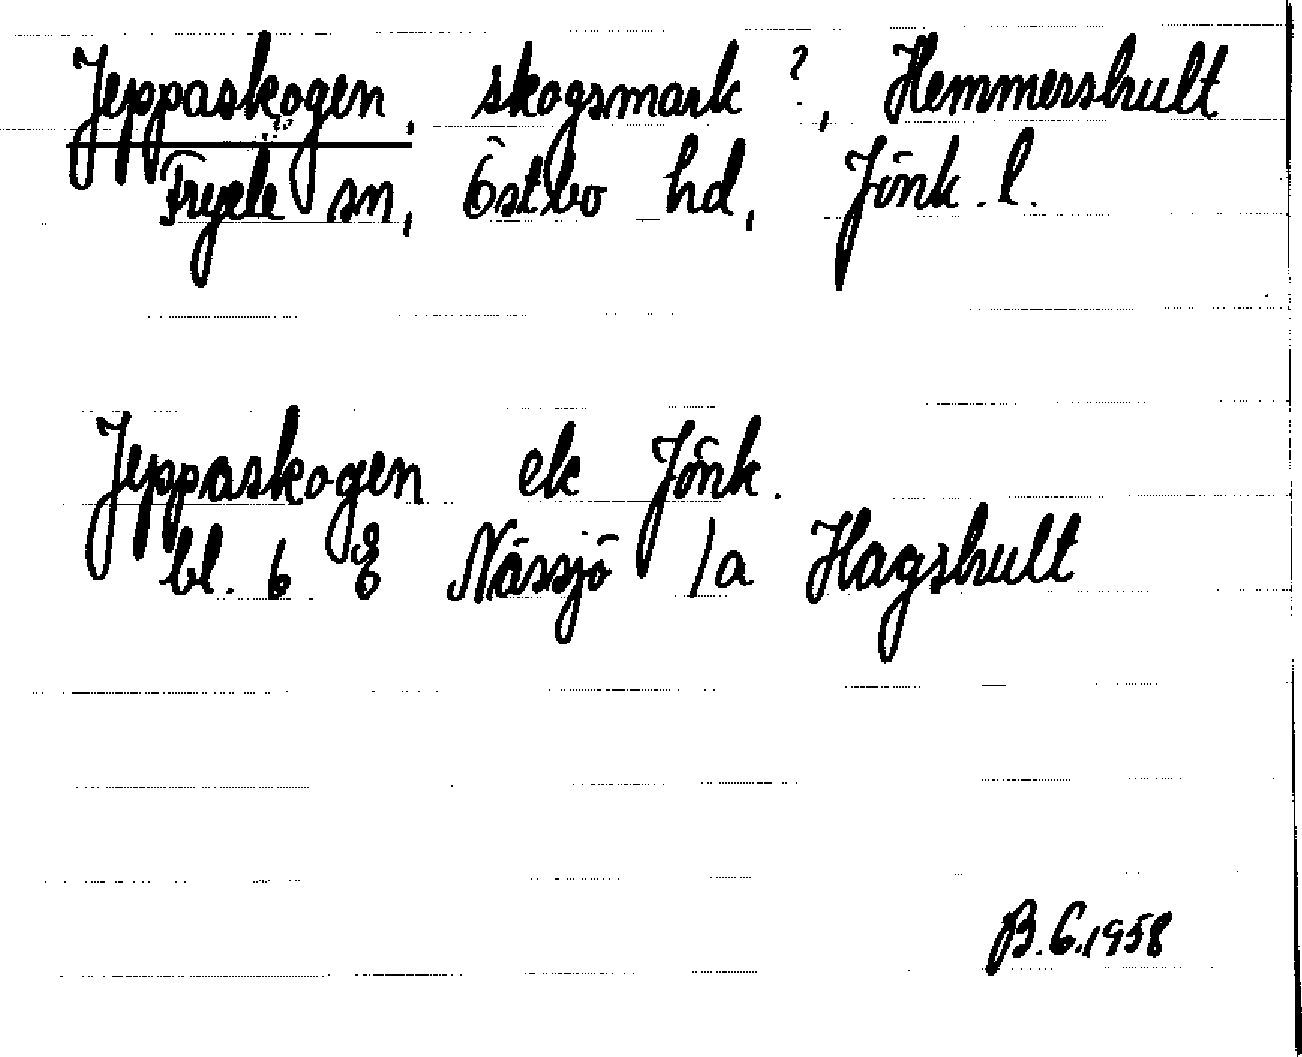 Jeppaskogen, skogsmark ?, Hemmershult
Fryele sn, Östbo hd, Jönk. l.
Jeppaskogen ek Jönk.
bl. 6 E Nässjö /a Hagshult
B.G.1958